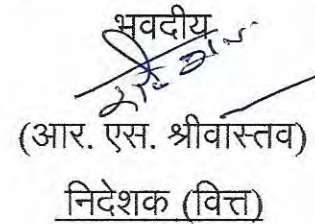 भवदीय
(आर. एस. श्रीवास्तव)
निदेशक (वित्त)